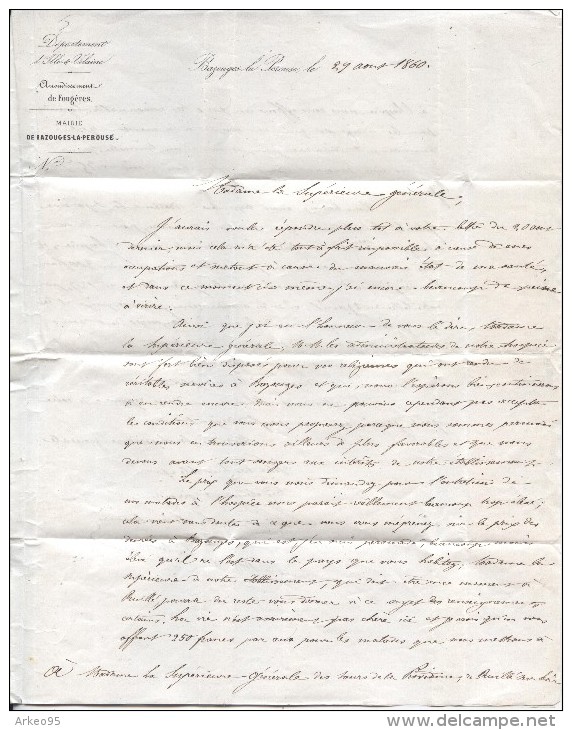 Département
d'Ille & Vilaine
Arrondissement
de Fougères.
MAIRIE
DE BAZOUGES-LA-PEROUSE.
N°
Bazouges la Perouse, le 29 août 1860.
Madame la Supérieure générale,
J'aurais voulu répondre plus tôt à votre lettre du 20 août
dernier, mais cela m'a été tout à fait impossible à cause de mes
occupations et surtout à cause du mauvais état de ma santé,
et dans ce moment ici même j'ai encore beaucoup de peine
à écrire.
Ainsi que j'ai eu l'honneur de vous le dire, Madame
la Supérieure générale, M.M. les administrateurs de notre hospice
sont fort bien disposés pour vos religieuses qui ont rendu de
véritables services à Bazouges et qui, nous l'espérons bien, continueront
à en rendre encore. Mais nous ne pouvons cependant pas accepter
les conditions que vous nous proposez, parce que nous sommes persuadé
que nous en trouverions ailleurs de plus favorables et que nous
devons avant tout songer aux intérêts de notre établissement.
Le prix que vous nous demandez pour l'entretien de
nos malades à l'hospice nous paraît réellement beaucoup trop élevé;
cela vient sans doute de ce que vous vous méprenez sur le prix des
denrées à Bazouges, qui est, j'en suis persuadé, beaucoup moins
élevé qu'il ne l'est dans le pays que vous habitez, Madame la
Supérieure de notre établissement qui doit être en ce moment à
Ruillé pourra du reste vous donner à ce sujet des renseignements
certains, la vie n'est assurément pas chère ici et je crois qu'en vous
offrant 250 francs par an pour les malades que nous mettons à
à Madame la Supérieure Générale des sœurs de la Providence, de Ruillé sur Loir
Arkeo95
www.delcampe.net